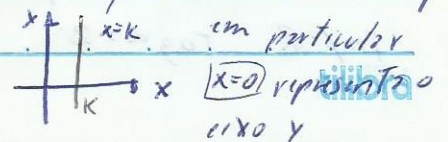 x x=K em particular
x=0 representa o
x
K
eixo y
tilibra